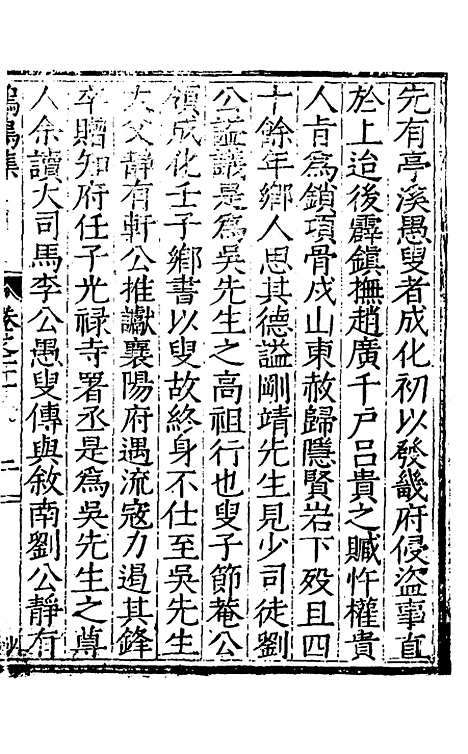 先有亭溪愚叟者成化初以發畿府侵盗事直
於上迨後露鎮撫趙廣千戶呂貴之贓忤權貴
人肯為鎖項骨戍山東赦歸隱賢岩下歿且四
十餘年鄉人思其德謚剛靖先生見少司徒劉
公謚議是為吳先生之高祖行也叟子節菴公
領成化壬子鄉書以叟故終身不仕至吳先生
大父靜有軒公推讞襄陽府遇流寇力遏其鋒
卒贈知府任子光祿寺署丞是為吳先生之尊
人余讀大司馬李公愚叟傳與敘南劉公靜有
集
卷之十
二